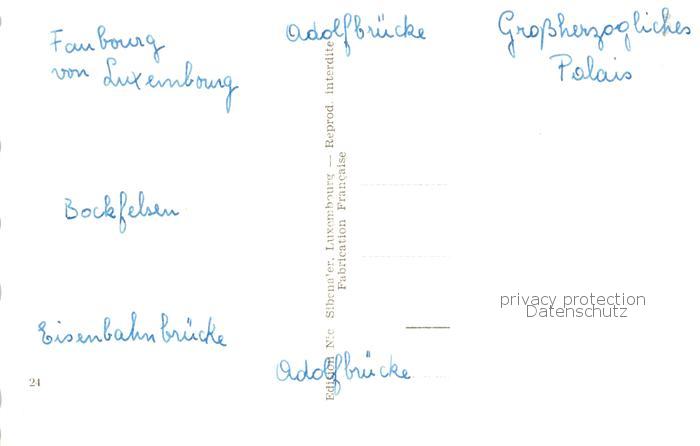 Faubourg
von Luxembourg
Adolfbrücke
Großherzogliches
Palais
Bockfelsen
Eisenbahnbrücke
Adolfbrücke
Edition Nic Sibenaler, Luxembourg — Reprod. interdite
Fabrication Française
privacy protection
Datenschutz
24